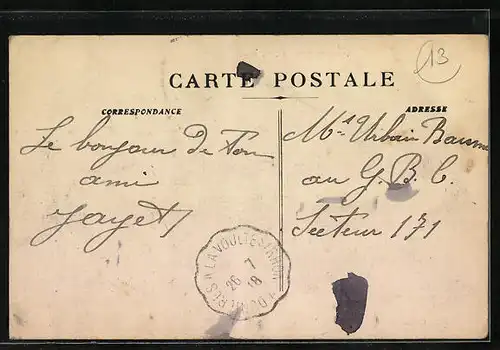 13
CARTE POSTALE
CORRESPONDANCE
ADRESSE
Le bonjour De ton
ami
Jayet
Mr Urbain
au G. B. C.
Secteur 171
A LA VOULTE S/RHON
26 7
18